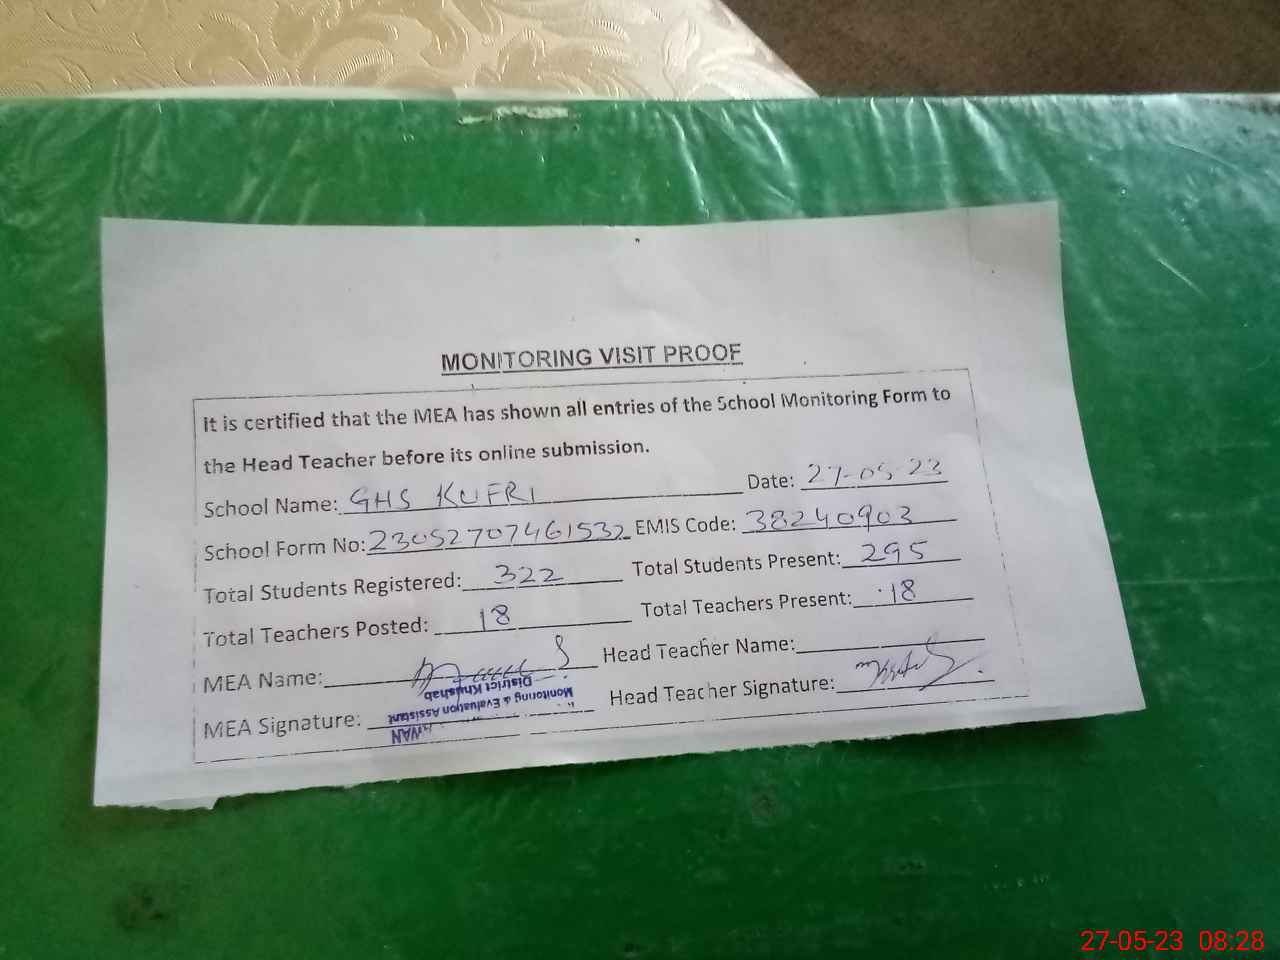 MONITORING VISIT PROOF
It is certified that the MEA has shown all entries of the School Monitoring Form to
the Head Teacher before its online submission.
School Name: GHS KUFRI Date: 27-05-23
School Form No: 23052707461532 EMIS Code: 38240903
Total Students Registered: 322 Total Students Present: 295
Total Teachers Posted: 18 Total Teachers Present: 18
MEA Name: Head Teacher Name:
MEA Signature: Head Teacher Signature:
Monitoring & Evaluation Assistant
District Khushab
27-05-23 08:28